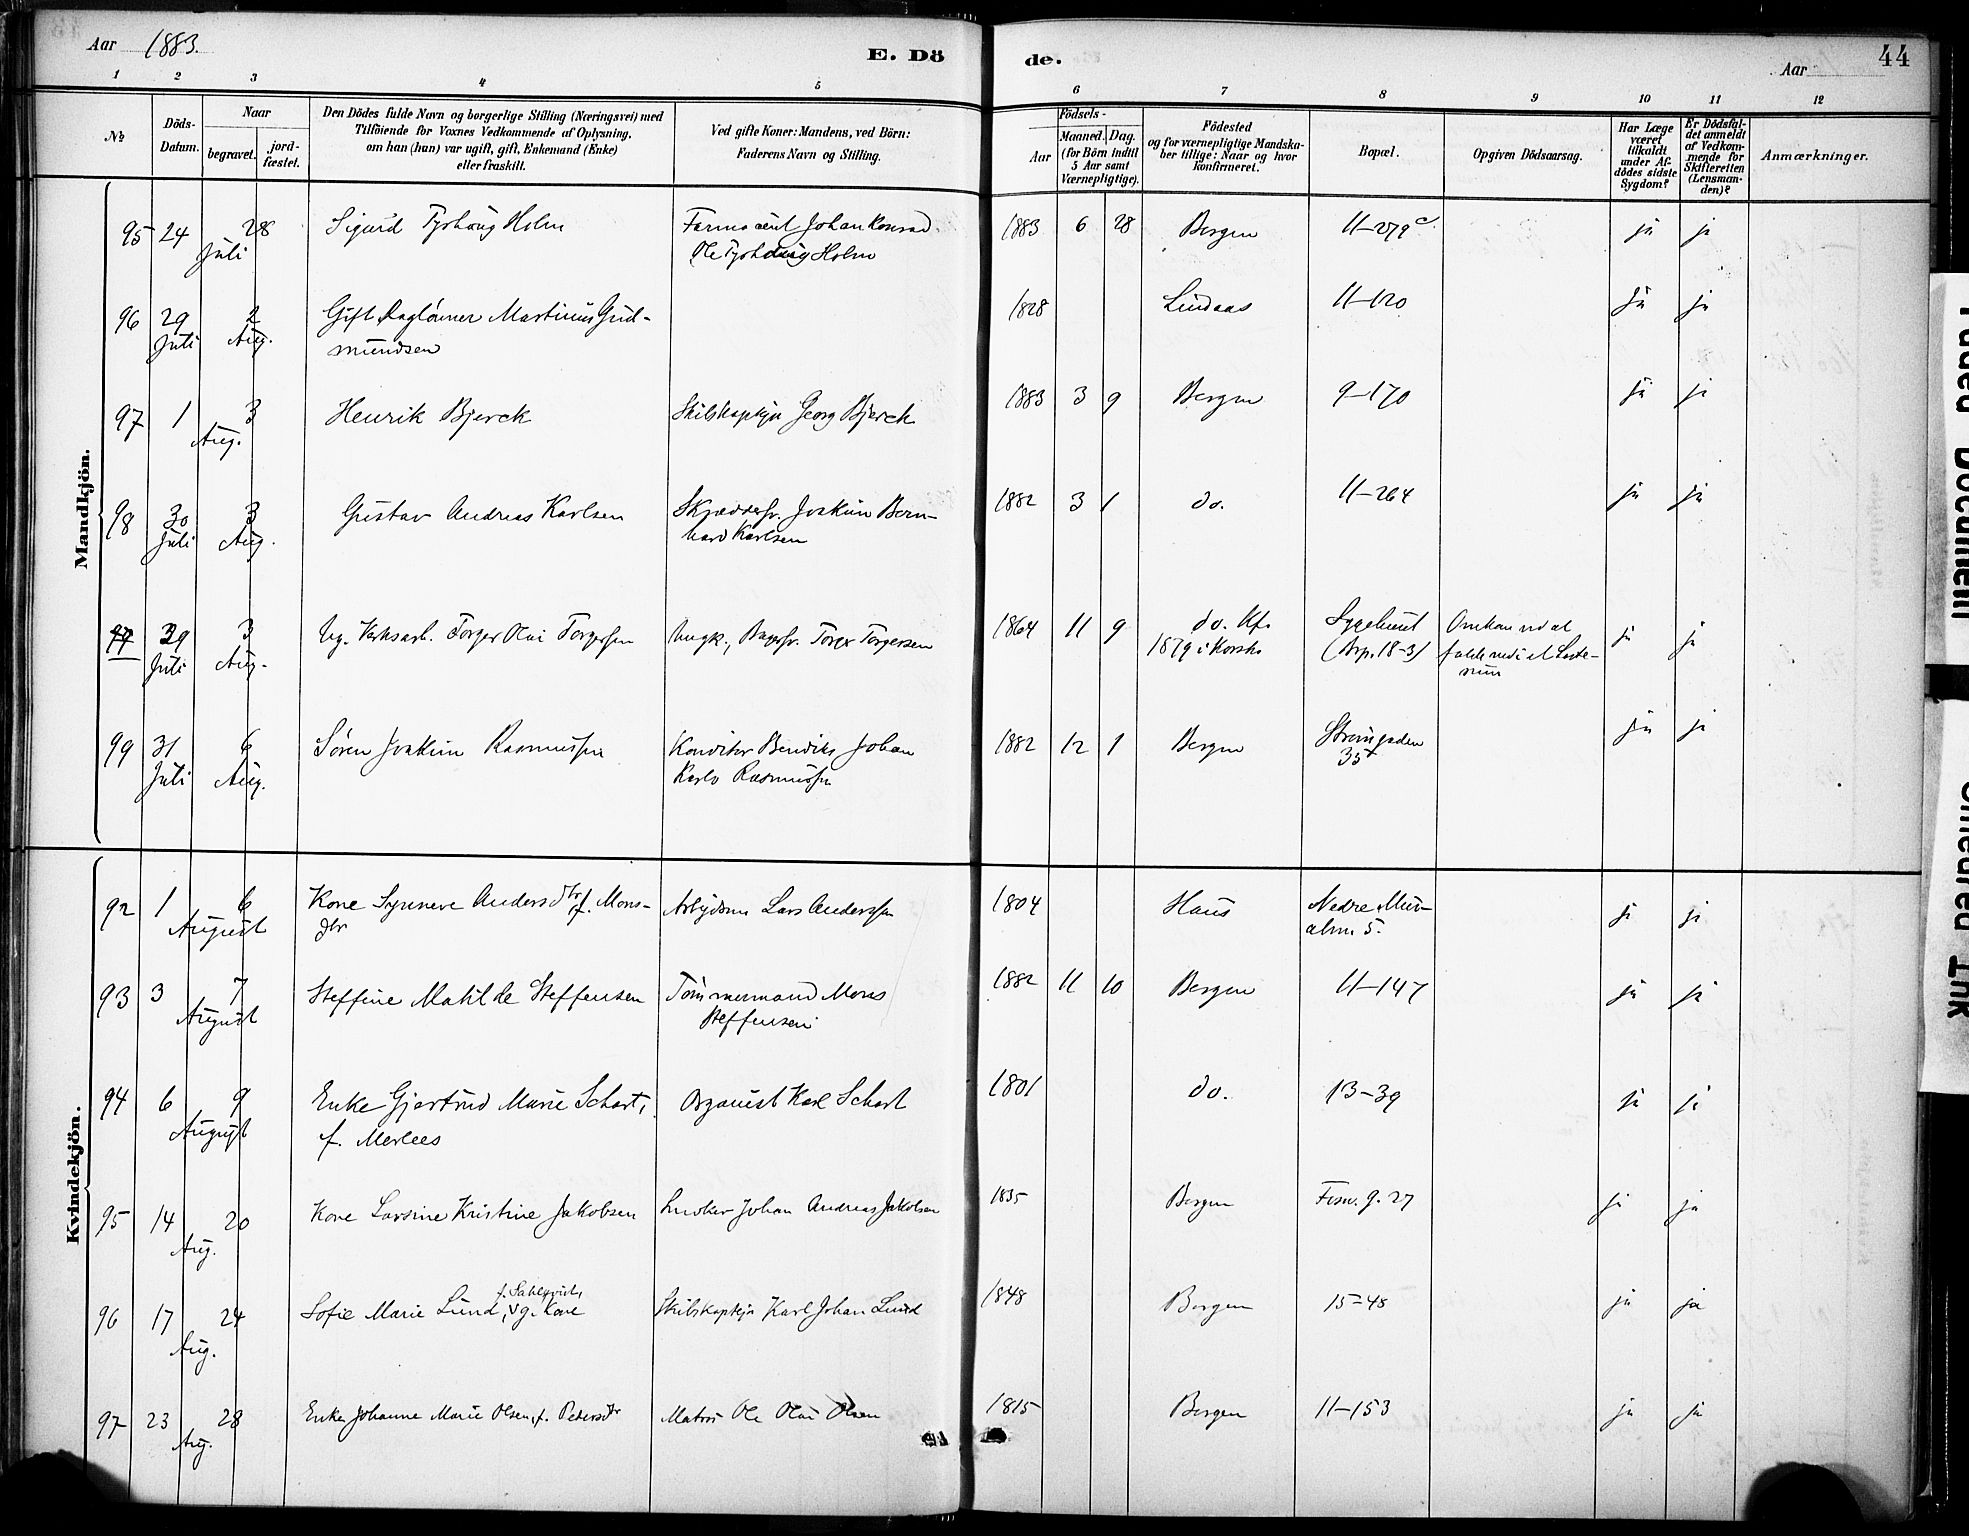 Aar 1883.
E. Dö
de.
Aar
44
1 2 3 4 5
6 7 8 9 10 11 12
No
Döds-
Datum.
Naar
begravet.
jord-
fæstet.
Den Dödes fulde Navn og borgerlige Stilling (Næringsvei) med
Tilföiende for Voxnes Vedkommende af Oplysning,
om han (hun) var ugift, gift, Enkemand (Enke)
eller fraskilt.
Ved gifte Koner: Mandens, ved Börn:
Faderens Navn og Stilling.
Födsels-
Aar
Maaned.
Dag.
(for Börn indtil
5 Aar samt
Værnepligtige).
Födested
og for værnepligtige Mandska-
ber tillige: Naar og hvor
konfirmeret.
Bopæl.
Opgiven Dödsaarsag.
Har Læge
været
tilkaldt
under Af-
dödes sidste
Sygdom?
Er Dödsfal-
det anmeldt
af Vedkom-
mende for
Skifteretten
(Lensman-
den)?
Anmærkninger.
Mandkjön.
95 24 28 Sigurd Holm Johan Konrad 1883 6 28 Bergen 11-279c ja ja
Juli Ole Holm
96 29 2 Gift Martinus Gud- 1828 Lindaas 11-120 ja ja
Juli Aug. mundsen
97 1 3 Henrik Bjerck Georg Bjerck 1883 3 9 Bergen 9-170 ja ja
Aug.
98 30 3 Gustav Andreas Karlsen Joakim Bern- 1882 3 1 do. 11-264 ja ja
Juli Aug. hard Karlsen
29 3 Ug. Torger Olai Torgersen Torger Torgersen 1864 11 9 do. Kf. ja ja
Juli Aug. 1879 i Korsk. 18-3)
99 31 6 Søren Joakim Rasmussen Konditor Bendiks Johan 1882 12 1 Bergen Strangaden ja ja
Juli Aug. Karlo Rasmussen 35
Kvindekjön.
92 1 6 Kone Synneve Andersdtr f. Mons- Lars Anderssen 1804 Haus Nedre Mur- ja ja
August dtr 5.
93 3 7 Steffine Matilde Steffensen Tømmermand Mons 1882 11 10 Bergen 11-147 ja ja
August Steffensen
94 6 9 Enke Gjertrud Marie Schart, Organist Karl Schart 1801 do. 13-39 ja ja
August f. Merlees
95 14 20 Kone Larsine Kristine Jakobsen Snedker Johan Andreas Jakobsen 1835 Bergen 9. 27 ja ja
Aug.
96 17 24 Sofie Marie Lund, g. Kone Karl Johan Lund 1848 Bergen 15-48 ja ja
Aug.
97 23 28 Enke Johanne Marie Olsen, f. Pedersdtr Matros Ole Olai Olsen 1815 Bergen 11-153 ja ja
Aug.
Faded Document
Smeared Ink